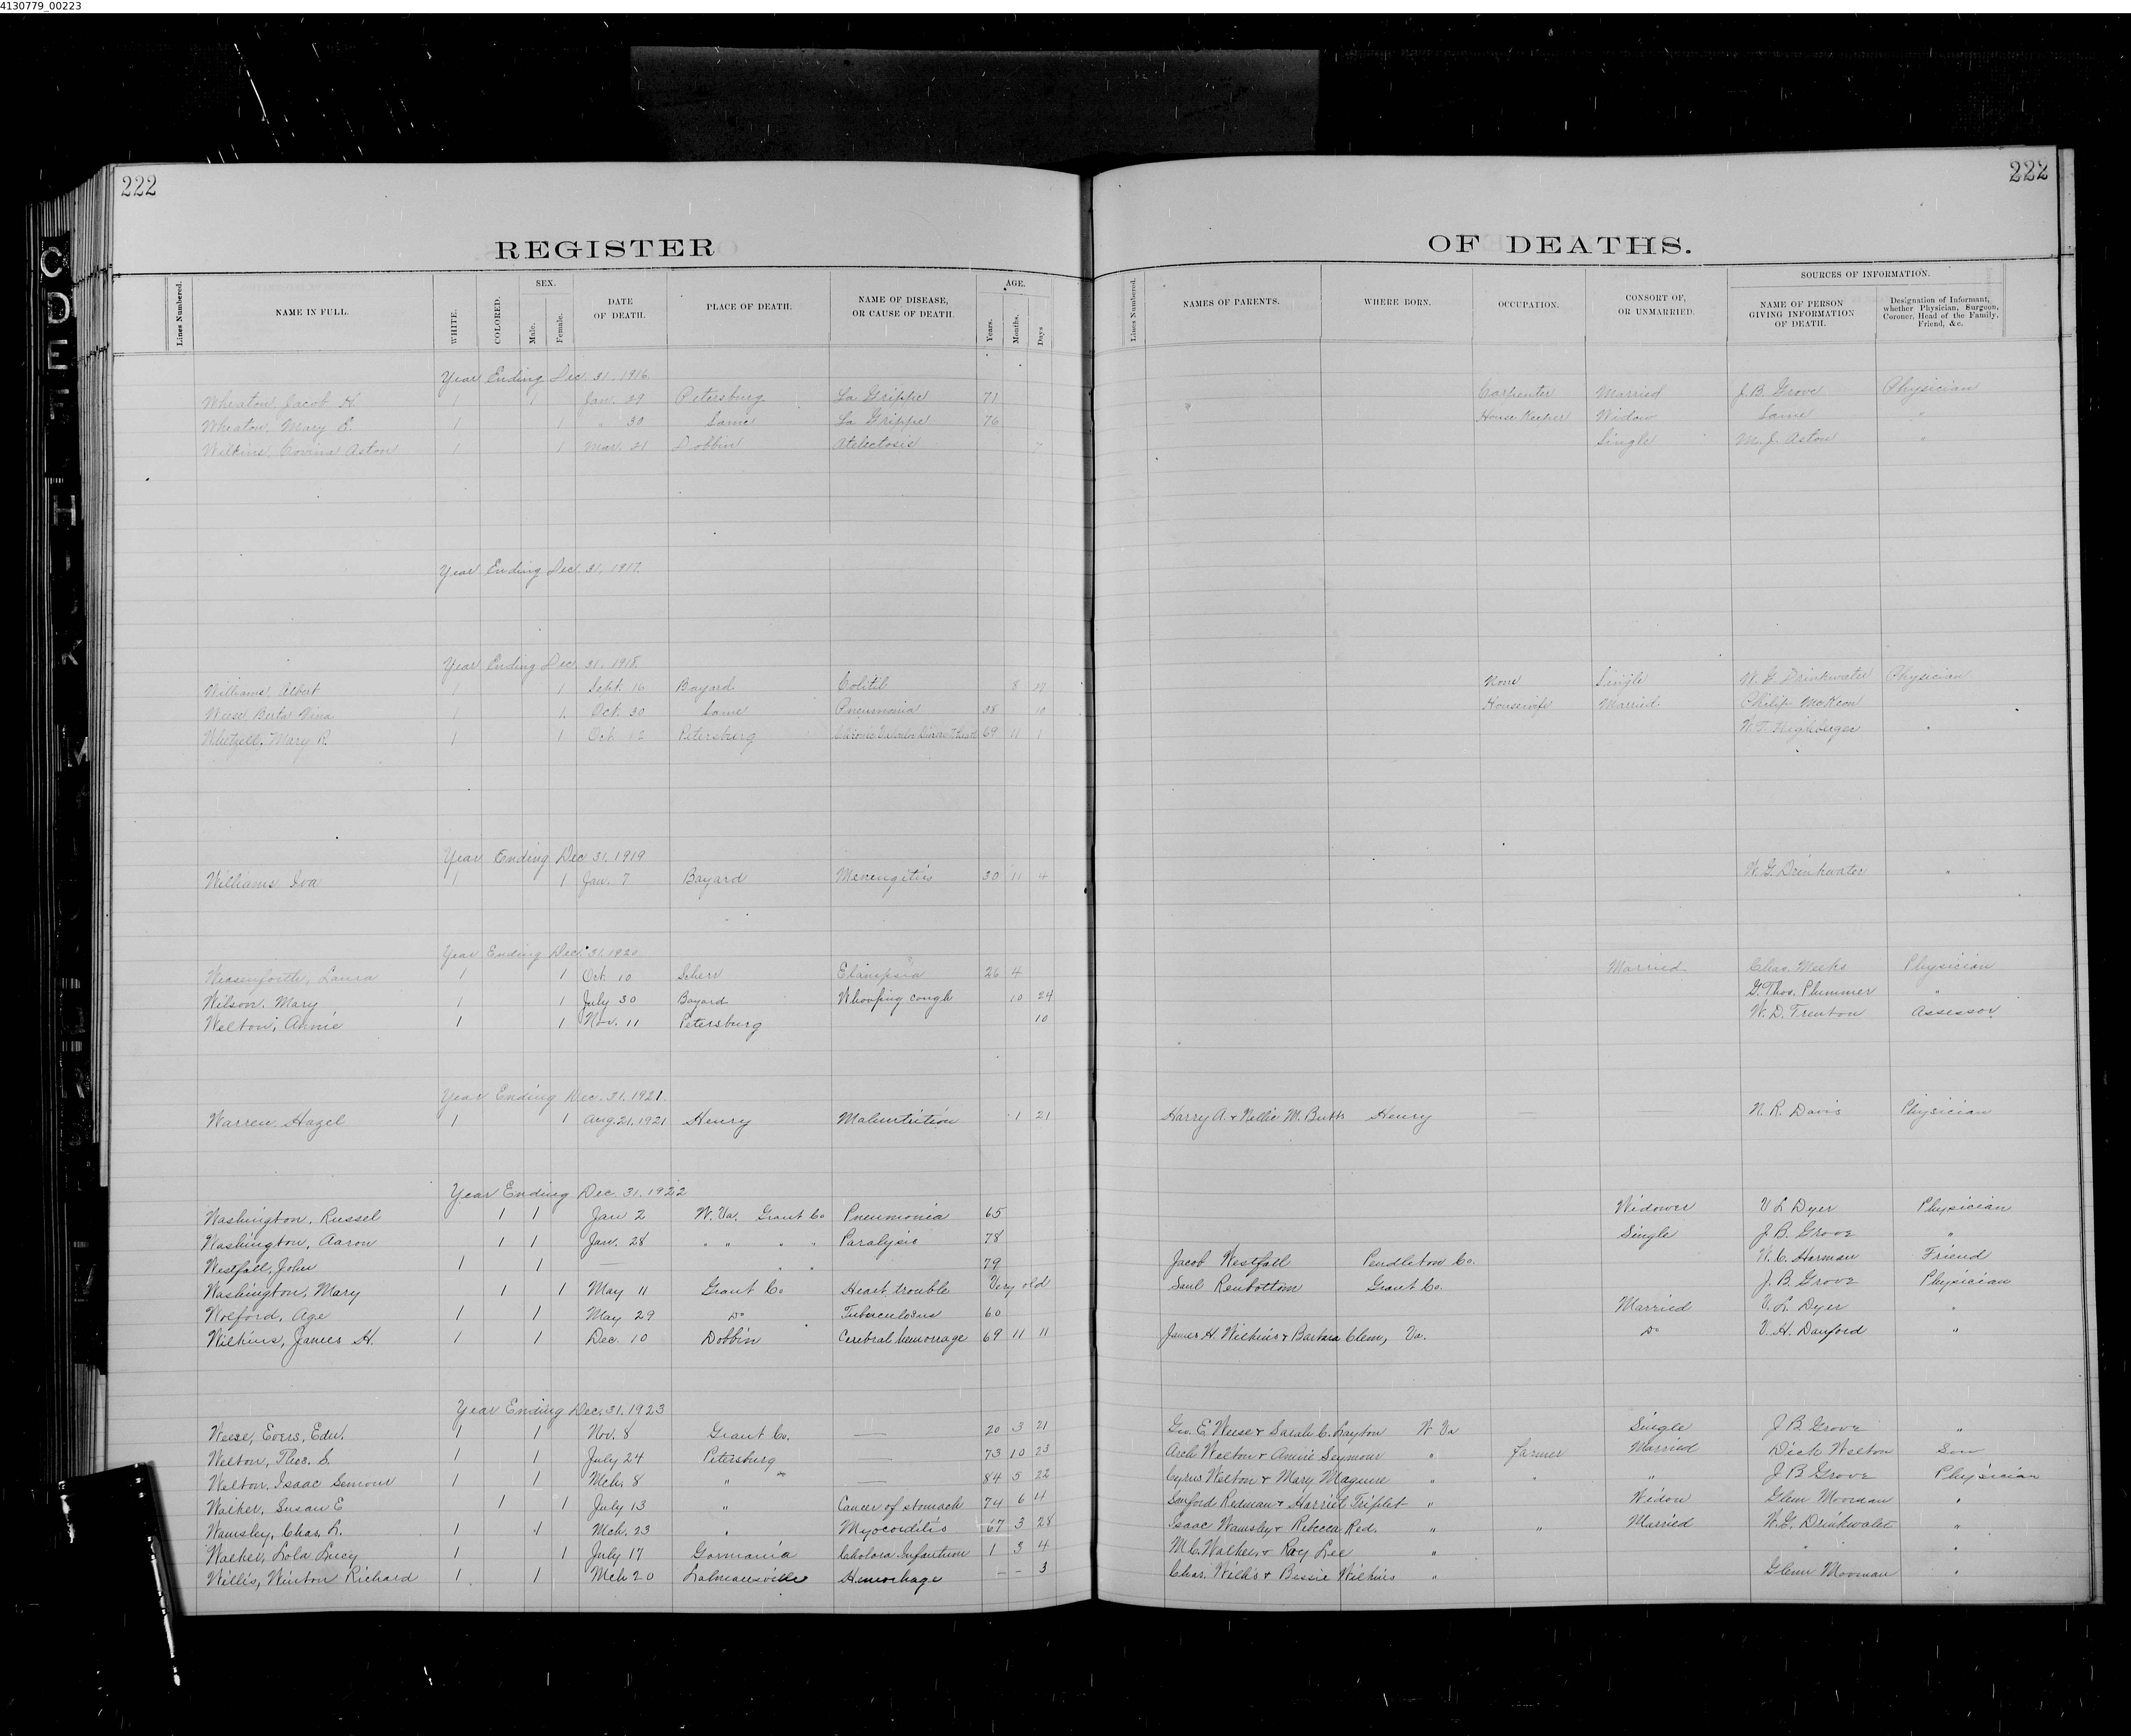 4130779_00223
222
222
REGISTER
OF DEATHS.
Lines Numbered.
NAME IN FULL.
WHITE.
COLORED.
SEX.
Male.
Female.
DATE OF DEATH.
PLACE OF DEATH.
NAME OF DISEASE, OR CAUSE OF DEATH.
AGE.
Years.
Months.
Days
Lines Numbered.
NAMES OF PARENTS.
WHERE BORN.
OCCUPATION.
CONSORT OF, OR UNMARRIED.
SOURCES OF INFORMATION.
NAME OF PERSON GIVING INFORMATION OF DEATH.
Designation of Informant, whether Physician, Surgeon, Coroner, Head of the Family, Friend, &c.
Year Ending Dec. 31, 1916
Wheaton, Jacob H. 1 1 Jan. 29 Petersburg La Grippe 71 Carpenter Married J. B. Grove Physician
Wheaton, Mary R. 1 1 " 30 Same La Grippe 76 House Keeper Widow Same "
Wilkins, Covina Aston 1 1 Mar. 21 Dobbin Atelectosis 7 Single M. J. Aston "
Year Ending Dec. 31, 1917.
Year Ending Dec. 31, 1918.
Williams, Albert 1 1 Sept. 16 Bayard 8 27 None Single W. G. Drinkwater Physician
Weese Berta Nina 1 1 Oct. 30 Same Pneumonia 38 10 Housewife Married Philip McKeon
Whetzell, Mary R. 1 1 Oct. 12 Petersburg Chronic 69 11 1 W. T. Highberger "
Year Ending Dec 31, 1919
Williams Iva 1 1 Jan. 7 Bayard Menengitis 30 11 4 W. G. Drinkwater "
Year Ending Dec. 31, 1920
Weasenforth, Laura 1 1 Oct. 10 Scherr Elampsia 26 4 Married Chas. Meeks Physician
Wilson, Mary 1 1 July 30 Bayard Whooping cough 10 24 G. Thos. Plummer "
Welton, Annie 1 1 Nov. 11 Petersburg 10 W. D. Trenton Assessor
Year Ending Dec. 31, 1921.
Warren Hazel 1 1 Aug. 21, 1921 Henry Malnutrition 1 21 Harry A. & Nellie M. Butts Henry — N. R. Davis Physician
Year Ending Dec. 31, 1922
Washington, Russel 1 1 Jan 2 W. Va. Grant Co Pneumonia 65 Widower V L Dyer Physician
Washington, Aaron 1 1 Jan. 28 " " " " Paralysis 78 Single J. B. Grove "
Westfall, John 1 1 — " " 79 Jacob Westfall Pendleton Co. W. C. Harman Friend
Washington, Mary 1 1 May 11 Grant Co Heart trouble Very old Saul Renbottom Grant Co. J. B. Grove Physician
Wolford, Age 1 1 May 29 Do Tuberculosus 60 Married V. L. Dyer "
Wilkins, James H. 1 1 Dec. 10 Dobbin Cerebral hemoreage 69 11 11 James H. Wilkins & Barbara Clem, Va. Do V. H. Danford "
Year Ending Dec. 31, 1923
Weese, Evers, Edw. 1 1 Nov. 8 Grant Co. — 20 3 21 Geo. E Weese & Sarah C. Layton W Va Single J B Grove "
Welton, Thos. S. 1 1 July 24 Petersburg — 73 10 23 Arch Welton & Annie Seymour " farmer Married Dick Welton Son
Welton, Isaac Semour 1 1 Mch. 8 " " — 84 5 22 Cyrus Welton & Mary Maguire " " " J B Grove Physician
Walker, Susan E 1 1 July 13 " Cancer of stomach 74 6 4 Sanford Redman & Harriet Triplet " Widow Glen Moorman "
Wamsley, Chas. L. 1 1 Mch. 23 " Myocorditis 67 3 28 Isaac Wamsley & Rebecca Red. " " Married W. G. Drinkwater "
Walker, Lola Lucy 1 1 July 17 Gormania Cholora Infantum 1 3 4 M. C. Walker & Ray Lee " " "
Willis, Winton Richard 1 1 Mch 20 Lahmansville Hemorhage — — 3 Chas. Willis & Bessie Wilkins " Glenn Moorman "